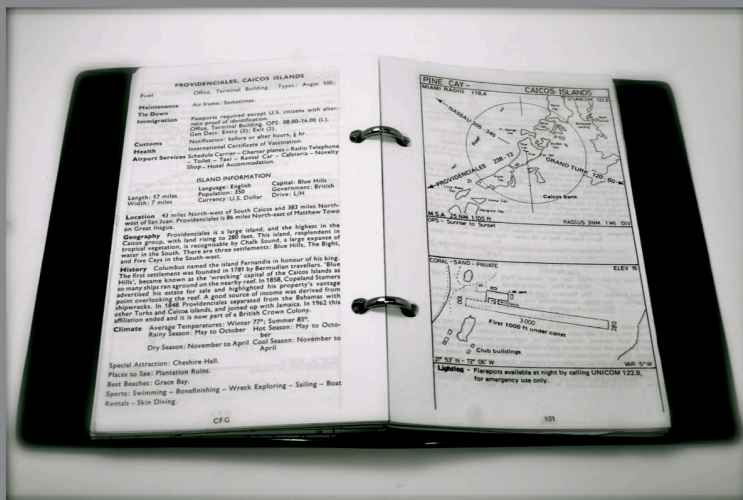 PROVIDENCIALES, CAICOS ISLANDS
Fuel Office, Terminal Building. Types: Avgas 100;
Maintenance Air frame: Sometimes.
Tie Down
Immigration Passports required except U.S. citizens with alter-
nate proof of identification.
Office, Terminal Building. OPS: 08.00–16.00 (L).
Gen Decs: Entry (2); Exit (2).
Customs Notification: before or after hours, ½ hr.
Health International Certificate of Vaccination.
Airport Services Schedule Carrier – Charter planes – Radio Telephone
– Toilet – Taxi – Rental Car – Cafeteria – Novelty
Shop – Hotel Accommodation.
ISLAND INFORMATION
Language: English Capital: Blue Hills
Length: 17 miles Population: 350 Government: British
Width: 7 miles Currency: U.S. Dollar Drive: L/H
Location 43 miles North-west of South Caicos and 383 miles North-
west of San Juan. Providenciales is 86 miles North-east of Matthew Town
on Great Inagua.
Geography Providenciales is a large island, and the highest in the
Caicos group, with land rising to 280 feet. This island, resplendent in
tropical vegetation, is recognisable by Chalk Sound, a large expanse of
water in the South. There are three settlements: Blue Hills, The Bight,
and Five Cays in the South-west.
History Columbus named the island Fernandia in honour of his king.
The first settlement was founded in 1781 by Bermudian travellers. 'Blue
Hills', became known as the 'wrecking' capital of the Caicos Islands as
so many ships ran aground on the nearby reef. In 1858, Copeland Stamers
advertised his estate for sale and highlighted his property's vantage
point overlooking the reef. A good source of income was derived from
shipwrecks. In 1848 Providenciales separated from the Bahamas with
other Turks and Caicos islands, and joined up with Jamaica. In 1962 this
affiliation ended and it is now part of a British Crown Colony.
Climate Average Temperatures: Winter 77°; Summer 85°.
Rainy Season: May to October Hot Season: May to Octo-
ber
Dry Season: November to April Cool Season: November to
April
Special Attraction: Cheshire Hall.
Places to See: Plantation Ruins.
Best Beaches: Grace Bay.
Sports: Swimming – Bonefinishing – Wreck Exploring – Sailing – Boat
Rentals – Skin Diving.
CFG
PINE CAY - CAICOS ISLANDS
MIAMI RADIO 118.4 UNICOM 122.8
NASSAU 305 · 345
Reef
PROVIDENCIALES 238 · 12
GRAND TURK 120 · 60
Caicos Bank
M.S.A. 25 NM 1,100 ft RADIUS 3NM 1 MI DIV
OPS - Sunrise to Sunset
CORAL - SAND - PRIVATE ELEV 15
3,000
First 1000 ft under const
Club buildings
21° 53' N - 72° 06' W VAR 5°W
Lighting - Flarepots available at night by calling UNICOM 122.8,
for emergency use only.
101